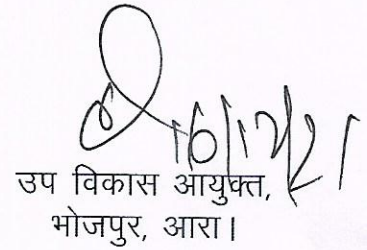 16/12/21
उप विकास आयुक्त,
भोजपुर, आरा।